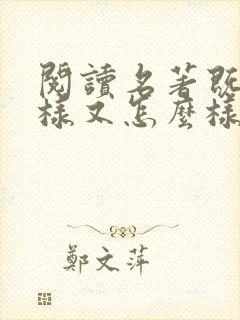 閱讀名著既
樣又怎麼樣
鄭文萍